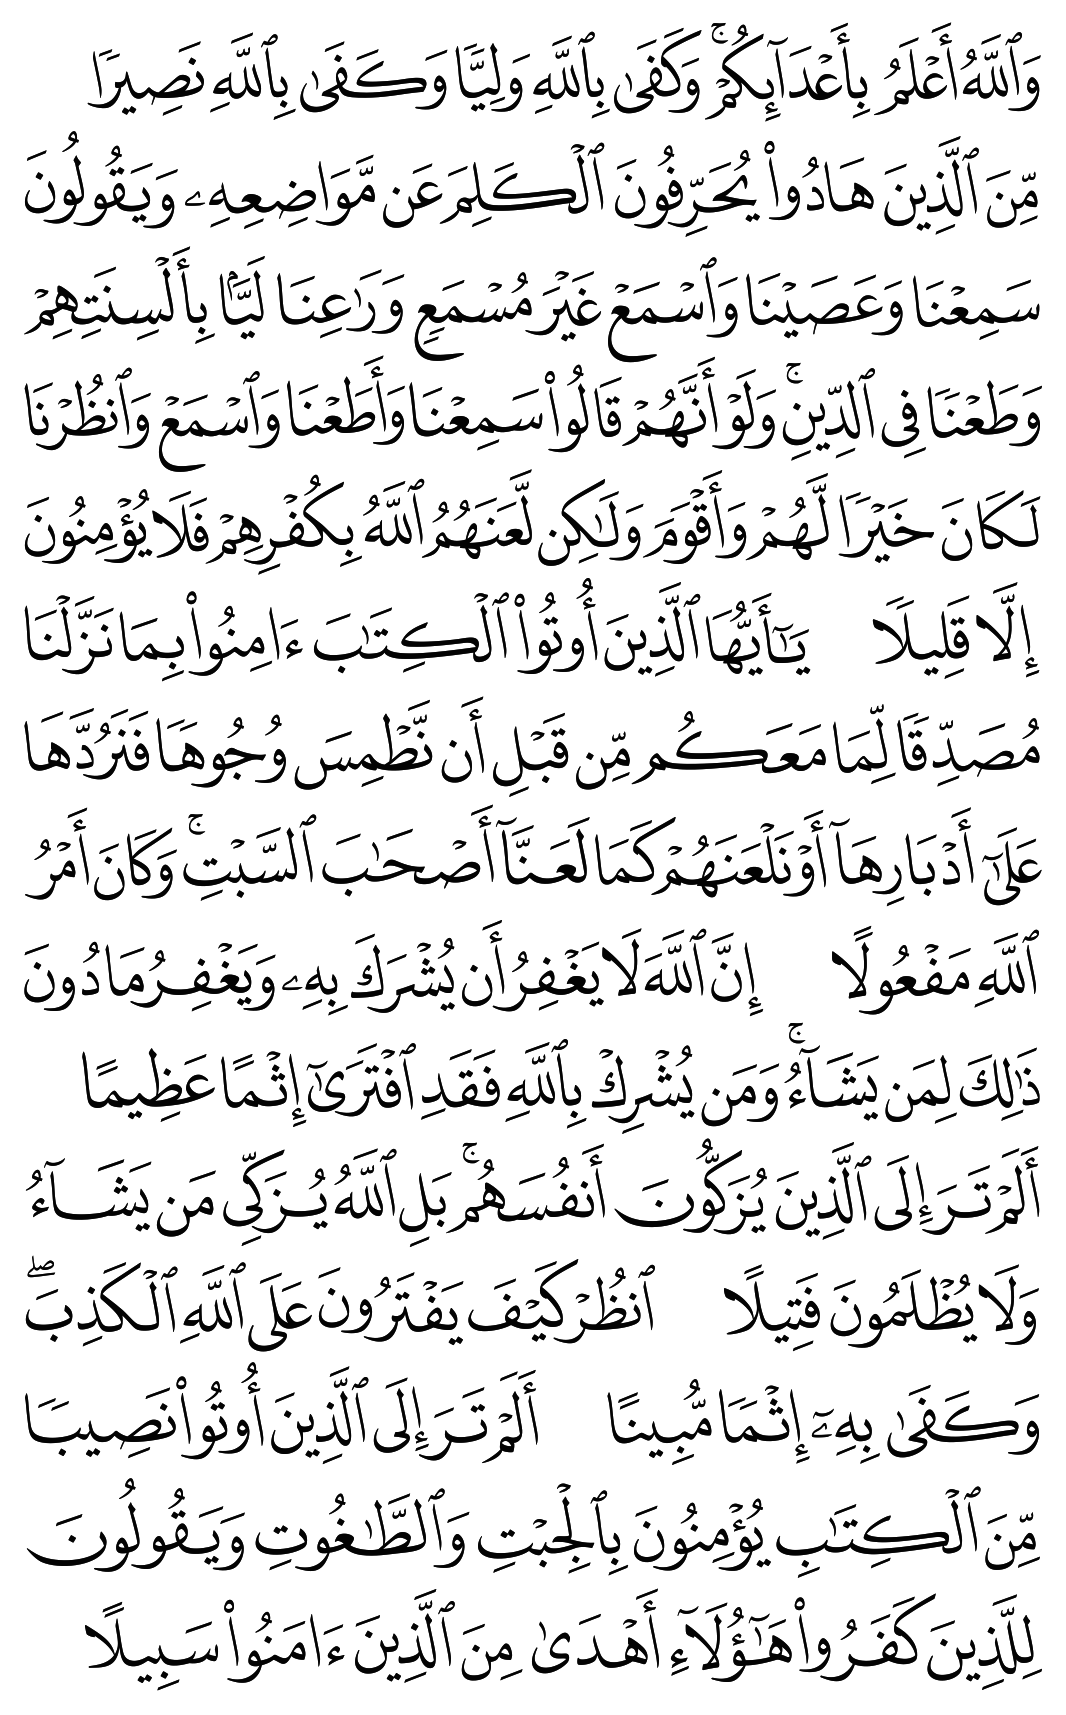 وَٱللَّهُ أَعْلَمُ بِأَعْدَآئِكُمْ ۚ وَكَفَىٰ بِٱللَّهِ وَلِيًّا وَكَفَىٰ بِٱللَّهِ نَصِيرًا
مِّنَ ٱلَّذِينَ هَادُوا۟ يُحَرِّفُونَ ٱلْكَلِمَ عَن مَّوَاضِعِهِۦ وَيَقُولُونَ
سَمِعْنَا وَعَصَيْنَا وَٱسْمَعْ غَيْرَ مُسْمَعٍ وَرَٰعِنَا لَيًّۢا بِأَلْسِنَتِهِمْ
وَطَعْنًا فِى ٱلدِّينِ ۚ وَلَوْ أَنَّهُمْ قَالُوا۟ سَمِعْنَا وَأَطَعْنَا وَٱسْمَعْ وَٱنظُرْنَا
لَكَانَ خَيْرًا لَّهُمْ وَأَقْوَمَ وَلَٰكِن لَّعَنَهُمُ ٱللَّهُ بِكُفْرِهِمْ فَلَا يُؤْمِنُونَ
إِلَّا قَلِيلًا يَٰٓأَيُّهَا ٱلَّذِينَ أُوتُوا۟ ٱلْكِتَٰبَ ءَامِنُوا۟ بِمَا نَزَّلْنَا
مُصَدِّقًا لِّمَا مَعَكُم مِّن قَبْلِ أَن نَّطْمِسَ وُجُوهًا فَنَرُدَّهَا
عَلَىٰٓ أَدْبَارِهَآ أَوْ نَلْعَنَهُمْ كَمَا لَعَنَّآ أَصْحَٰبَ ٱلسَّبْتِ ۚ وَكَانَ أَمْرُ
ٱللَّهِ مَفْعُولًا إِنَّ ٱللَّهَ لَا يَغْفِرُ أَن يُشْرَكَ بِهِۦ وَيَغْفِرُ مَا دُونَ
ذَٰلِكَ لِمَن يَشَآءُ ۚ وَمَن يُشْرِكْ بِٱللَّهِ فَقَدِ ٱفْتَرَىٰٓ إِثْمًا عَظِيمًا
أَلَمْ تَرَ إِلَى ٱلَّذِينَ يُزَكُّونَ أَنفُسَهُم ۚ بَلِ ٱللَّهُ يُزَكِّى مَن يَشَآءُ
وَلَا يُظْلَمُونَ فَتِيلًا ٱنظُرْ كَيْفَ يَفْتَرُونَ عَلَى ٱللَّهِ ٱلْكَذِبَ ۖ
وَكَفَىٰ بِهِۦٓ إِثْمًا مُّبِينًا أَلَمْ تَرَ إِلَى ٱلَّذِينَ أُوتُوا۟ نَصِيبًا
مِّنَ ٱلْكِتَٰبِ يُؤْمِنُونَ بِٱلْجِبْتِ وَٱلطَّٰغُوتِ وَيَقُولُونَ
لِلَّذِينَ كَفَرُوا۟ هَٰٓؤُلَآءِ أَهْدَىٰ مِنَ ٱلَّذِينَ ءَامَنُوا۟ سَبِيلًا